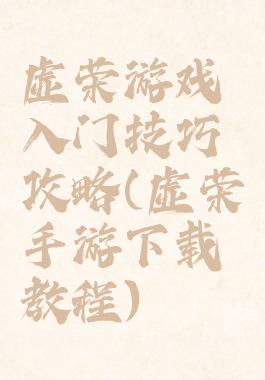 虚荣游戏
入门技巧
攻略(虚荣
手游下载
教程)